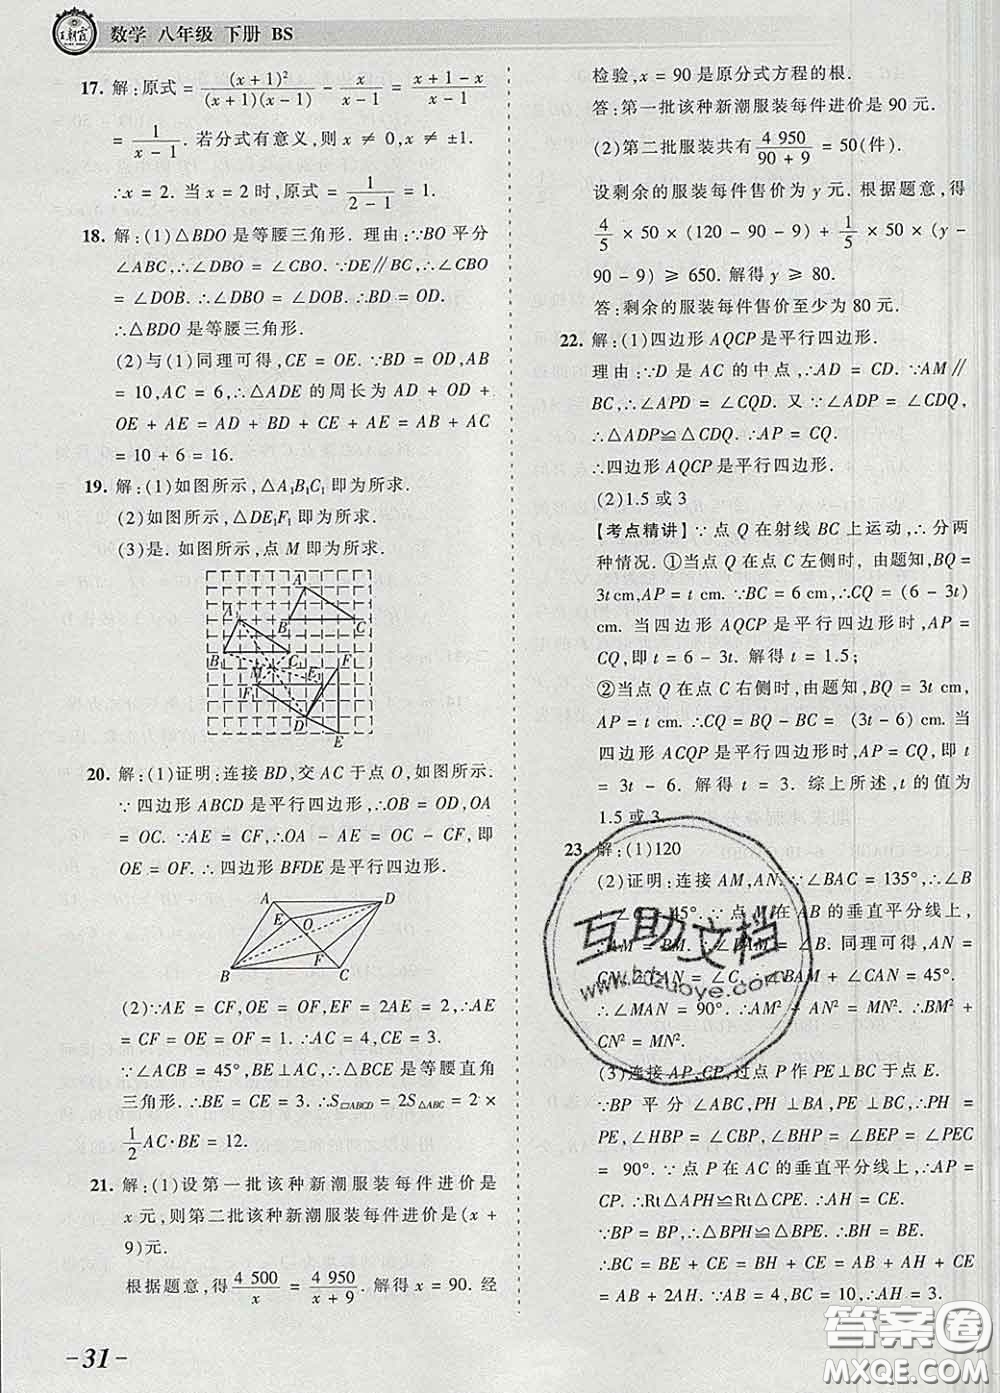 王朝霞 数学 八年级 下册 BS
17. 解:原式 = (x+1)²/((x+1)(x-1)) - x/(x-1) = (x+1-x)/(x-1)
= 1/(x-1). 若分式有意义,则 x ≠ 0,x ≠ ±1.
∴x = 2. 当 x = 2 时,原式 = 1/(2-1) = 1.
18. 解:(1)△BDO 是等腰三角形. 理由:∵BO 平分
∠ABC,∴∠DBO = ∠CBO. ∵DE∥BC,∴∠CBO
= ∠DOB. ∴∠DBO = ∠DOB. ∴BD = OD.
∴△BDO 是等腰三角形.
(2)与(1)同理可得,CE = OE. ∵BD = OD,AB
= 10,AC = 6,∴△ADE 的周长为 AD + OD +
OE + AE = AD + BD + CE + AE = AB + AC
= 10 + 6 = 16.
19. 解:(1)如图所示,△A₁B₁C₁ 即为所求.
(2)如图所示,△DE₁F₁ 即为所求.
(3)是. 如图所示,点 M 即为所求.
A
A₁
B C
B₁ C₁ F
M E₁
F₁
D
E
20. 解:(1)证明:连接 BD,交 AC 于点 O,如图所示.
∵四边形 ABCD 是平行四边形,∴OB = OD,OA
= OC. ∵AE = CF,∴OA - AE = OC - CF,即
OE = OF. ∴四边形 BFDE 是平行四边形.
A D
E O
F
B C
(2)∵AE = CF,OE = OF,EF = 2AE = 2,∴AE
= CF = OE = OF = 1. ∴AC = 4,CE = 3.
∵∠ACB = 45°,BE⊥AC,∴△BCE 是等腰直角
三角形. ∴BE = CE = 3. ∴S▱ABCD = 2S△ABC = 2 ×
1/2 AC·BE = 12.
21. 解:(1)设第一批该种新潮服装每件进价是
x 元,则第二批该种新潮服装每件进价是(x +
9)元.
根据题意,得 4 500/x = 4 950/(x + 9). 解得 x = 90. 经
检验,x = 90 是原分式方程的根.
答:第一批该种新潮服装每件进价是 90 元.
(2)第二批服装共有 4 950/(90 + 9) = 50(件).
设剩余的服装每件售价为 y 元. 根据题意,得
4/5 × 50 × (120 - 90 - 9) + 1/5 × 50 × (y -
90 - 9) ≥ 650. 解得 y ≥ 80.
答:剩余的服装每件售价至少为 80 元.
22. 解:(1)四边形 AQCP 是平行四边形.
理由:∵D 是 AC 的中点,∴AD = CD. ∵AM∥
BC,∴∠APD = ∠CQD. 又∵∠ADP = ∠CDQ,
∴△ADP≌△CDQ. ∴AP = CQ.
∴四边形 AQCP 是平行四边形.
(2)1.5 或 3
【考点精讲】∵点 Q 在射线 BC 上运动,∴分两
种情况. ①当点 Q 在点 C 左侧时,由题知,BQ =
3t cm,AP = t cm. ∵BC = 6 cm,∴CQ = (6 - 3t)
cm. 当四边形 AQCP 是平行四边形时,AP =
CQ,即 t = 6 - 3t. 解得 t = 1.5;
②当点 Q 在点 C 右侧时,由题知,BQ = 3t cm,
AP = t cm. ∴CQ = BQ - BC = (3t - 6) cm. 当
四边形 ACQP 是平行四边形时,AP = CQ,即 t
= 3t - 6. 解得 t = 3. 综上所述,t 的值为
1.5 或 3.
23. 解:(1)120
(2)证明:连接 AM,AN. ∵∠BAC = 135°,∴∠B
+ ∠C = 45°. ∵点 M 在 AB 的垂直平分线上,
∴AM = BM. ∴∠BAM = ∠B. 同理可得,AN =
CN,∠CAN = ∠C. ∴∠BAM + ∠CAN = 45°.
∴∠MAN = 90°. ∴AM² + AN² = MN². ∴BM² +
CN² = MN².
(3)连接 AP,CP,过点 P 作 PE⊥BC 于点 E.
∵BP 平分 ∠ABC,PH⊥BA,PE⊥BC,∴PH =
PE,∠HBP = ∠CBP,∠BHP = ∠BEP = ∠PEC
= 90°. ∵点 P 在 AC 的垂直平分线上,∴AP =
CP. ∴Rt△APH≌Rt△CPE. ∴AH = CE.
∵BP = BP,∴△BPH≌△BPE. ∴BH = BE.
∴BC = BE + CE = BH + CE = AB + AH + CE
= AB + 2AH. ∵AB = 4,BC = 10,∴AH = 3.
互助文档
www.bdzuoye.com
答案圈
MXQE.COM
-31-